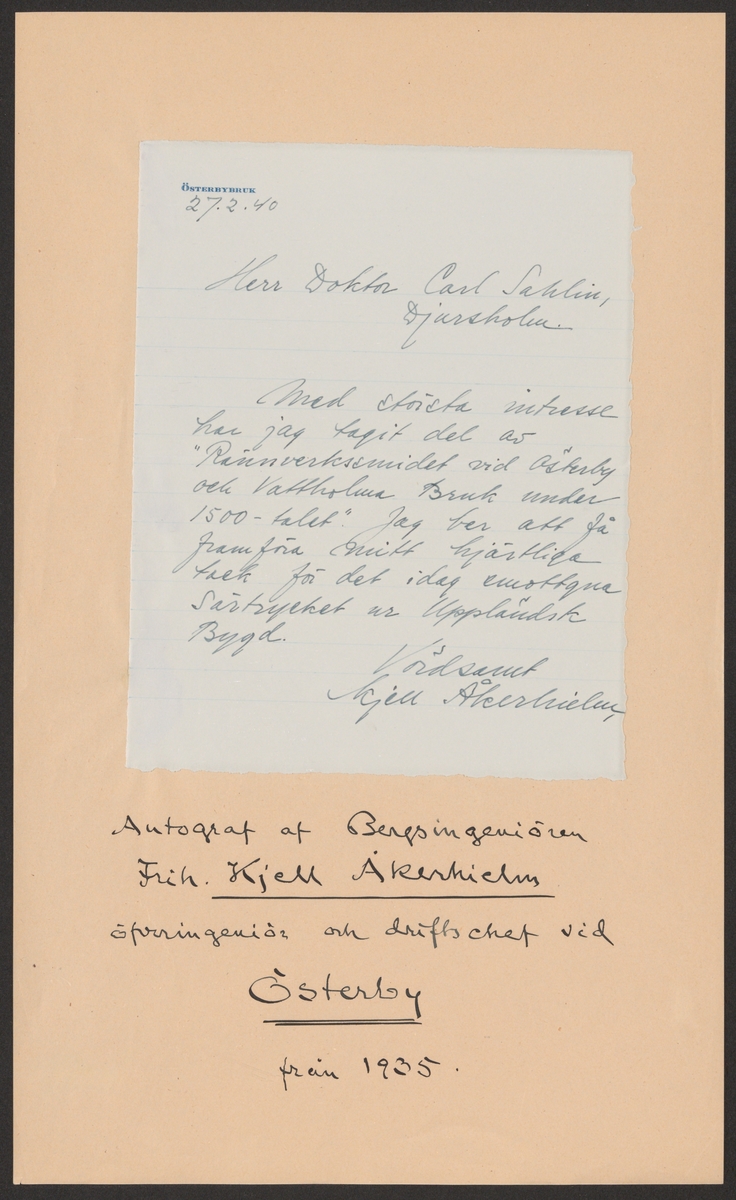 ÖSTERBYBRUK
27.2.40
Herr Doktor Carl Sahlin,
Djursholm.
Med största intresse
har jag tagit del av
"Rännverkssmidet vid Österby
och Vattholma Bruk under
1500-talet". Jag ber att få
framföra mitt hjärtliga
tack för det idag emottgna
Särtrycket ur Uppländsk
Bygd.
Vördsamt
Kjell Åkerhielm
Autograf af Bergsingeniören
Frih. Kjell Åkerhielm
öfveringeniör och driftschef vid
Österby
från 1935.